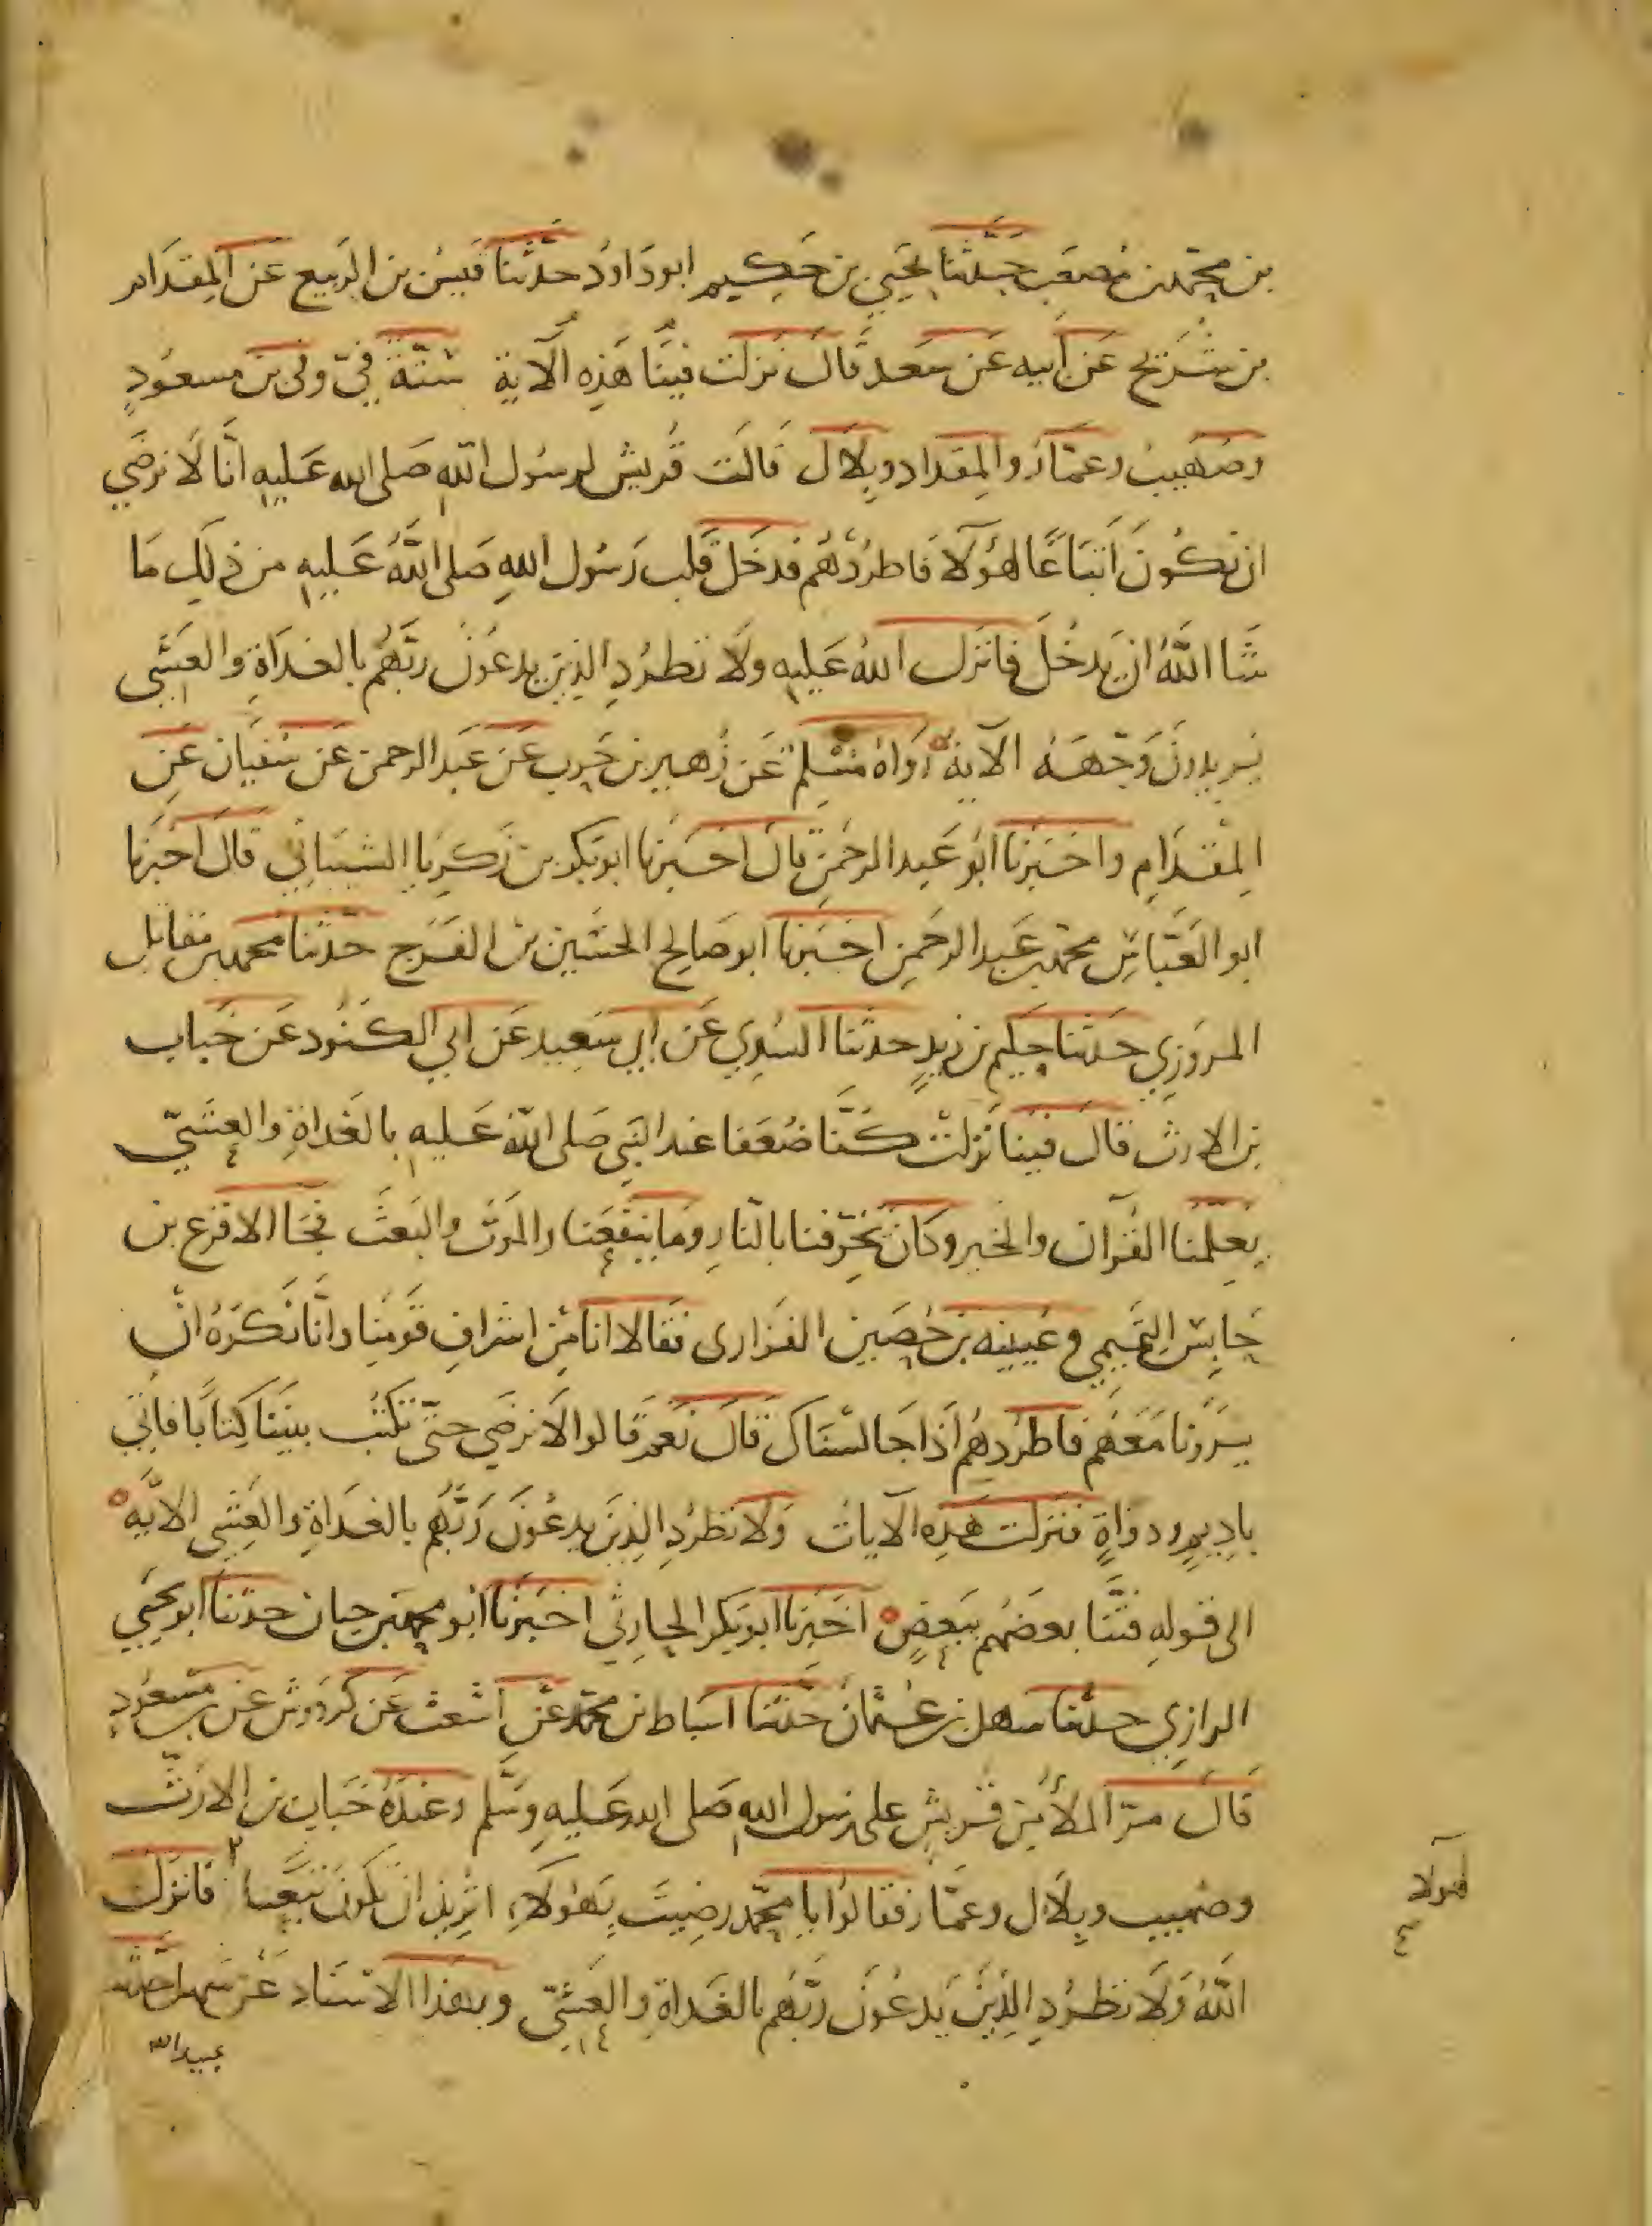 بن محمد بن مصعب حدثنا يحيى بن حكيم ابو داود حدثنا قيس بن الربيع عن المقدام
بن شريح عن ابيه عن سعد قال نزلت فينا هذه الآية ستة في وفي بن مسعود
وصهيب وعمار والمقداد وبلال قالت قريش لرسول الله صلى الله عليه انا لا نرضى
ان نكون اتباعا لهؤلا فاطردهم فدخل قلب رسول الله صلى الله عليه من ذلك ما
شا الله ان يدخل فانزل الله عليه ولا تطرد الذين يدعون ربهم بالغداة والعشي
يريدون وجهه الآية رواه مسلم عن زهير بن حرب عن عبد الرحمن عن سفيان عن
المقدام واخبرنا ابو عبد الرحمن قال اخبرنا ابو بكر بن زكريا الشيباني قال اخبرنا
ابو العباس محمد بن عبد الرحمن اخبرنا ابو صالح الحسين بن الفرج حدثنا محمد بن مقاتل
المروزي حدثنا حكيم بن زيد حدثنا السدي عن ابي سعيد عن ابي الكنود عن خباب
بن الارت قال فينا نزلت كنا ضعفا عند النبي صلى الله عليه بالغداة والعشي
يعلمنا القرآن والخير وكان يخوفنا بالنار وما ينفعنا والموت والبعث فجا الاقرع بن
حابس التميمي وعيينه بن حصين الفزارى فقالا انا من اشراف قومنا وانا نكره ان
يرونا معهم فاطردهم اذا جالسناك قال نعم قالوا لا نرضى حتى تكتب بيننا كتابا فاتى
باديم ودواة فنزلت هذه الآيات ولا تطرد الذين يدعون ربهم بالغداة والعشي الايه
الى قوله فتنا بعضهم ببعض اخبرنا ابو بكر الحارثي اخبرنا ابو محمد بن حيان حدثنا ابو يحيى
الرازي حدثنا سهل بن عثمان حدثنا اسباط بن محمد عن اشعث عن كردوس عن بن مسعود
قال مر الملأ من قريش على رسول الله صلى الله عليه وسلم وعنده خباب بن الارت
وصهيب وبلال وعمار فقالوا يا محمد رضيت بهؤلاء اتريد ان نكون تبعا فانزل
لهولا
الله ولا تطرد الذين يدعون ربهم بالغداة والعشي وبهذا الاسناد عن سهل حدثنا
عبيد الله